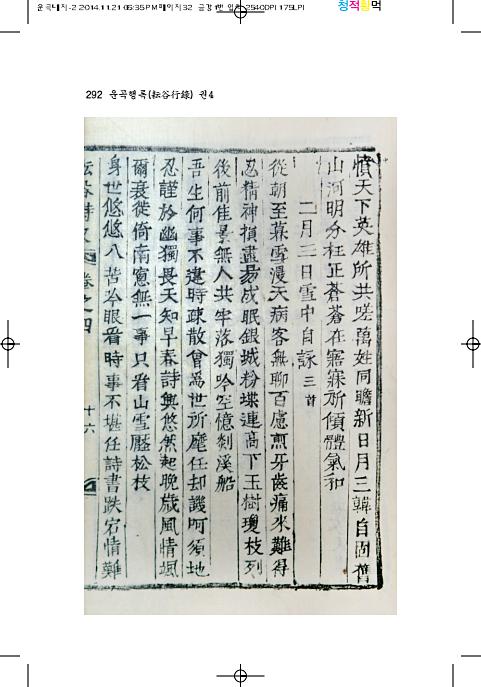 운곡내지-2 2014.11.21 05:35 PM 페이지32
청적황먹
292 운곡행록(耘谷行錄) 권4
憤天下英雄所共嗟萬姓同瞻新日月三韓自固舊
山河明分枉正蒼蒼在寤寐所傾體氣和
二月二日雪中自詠 三首
從朝至暮雪漫天病客無聊百慮煎牙齒痛來難得
忍精神損盡易成眠銀城粉堞連高下玉樹瓊枝列
後前佳景無人共牢落獨吟空憶剡溪船
吾生何事不遑時疎散曾爲世所麾任却譏呵須地
忍謹於幽獨畏天知早春詩興悠然起晚歲風情颯
爾衰從倚南窓無一事只看山雪壓松枝
身世悠悠八苦吟眼看時事不堪任詩書跌宕情難
卷之四
十六